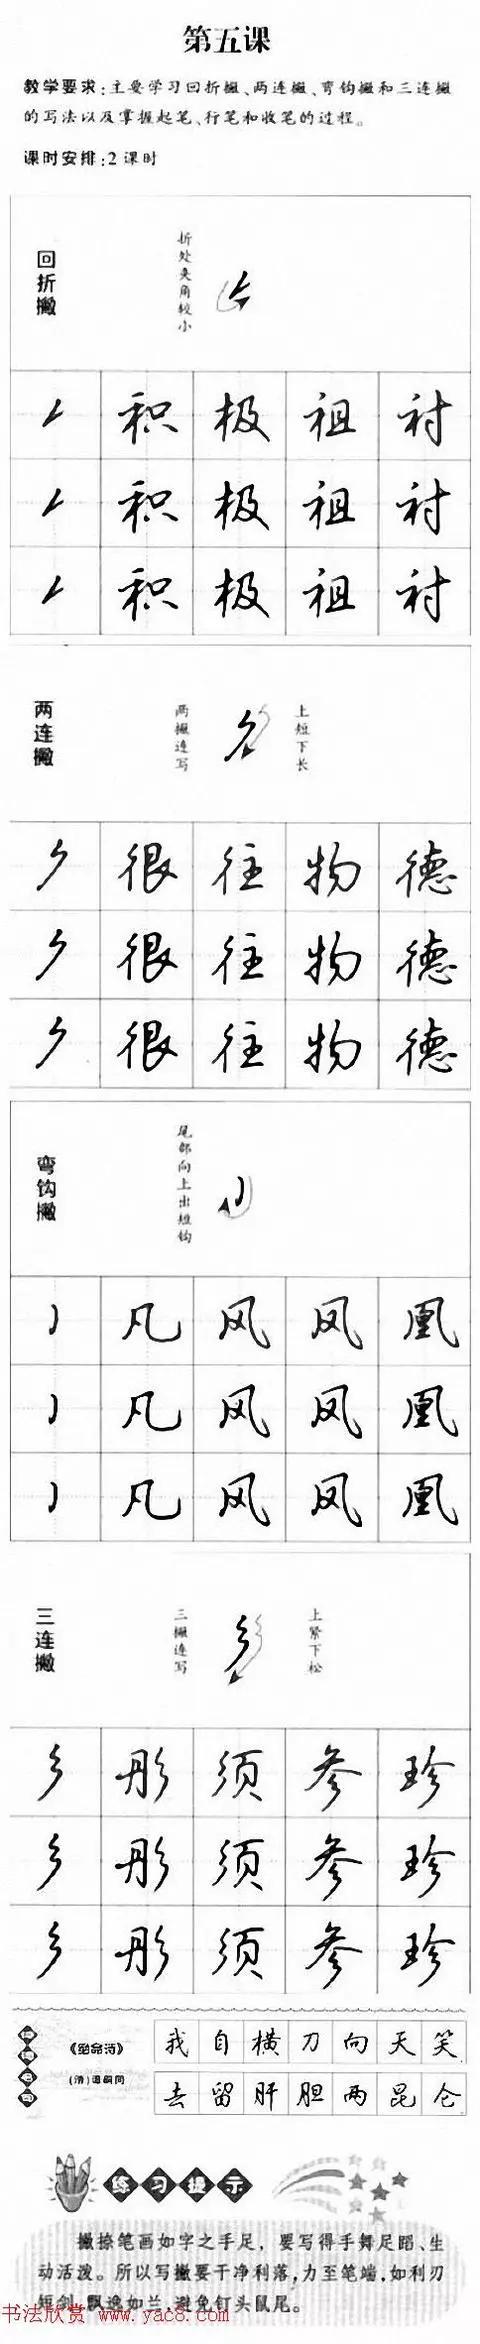 第五课
教学要求:主要学习回折撇、两连撇、弯钩撇和三连撇
的写法以及掌握起笔、行笔和收笔的过程。
课时安排:2课时
回折撇
折处夹角较小
积 极 祖 衬
积 极 祖 衬
积 极 祖 衬
两连撇
两撇连写
上短下长
很 往 物 德
很 往 物 德
很 往 物 德
弯钩撇
尾部向上出短钩
凡 风 凤 凰
凡 风 凤 凰
凡 风 凤 凰
三连撇
三撇连写
上紧下松
彤 须 参 珍
彤 须 参 珍
彤 须 参 珍
《绝命诗》
(清)谭嗣同
我自横刀向天笑
去留肝胆两昆仑
练习提示
撇捺笔画如字之手足，要写得手舞足蹈、生
动活泼。所以写撇要干净利落,力至笔端,如利刃
短剑,飘逸如兰,避免钉头鼠尾。
书法欣赏 www.yac8.com